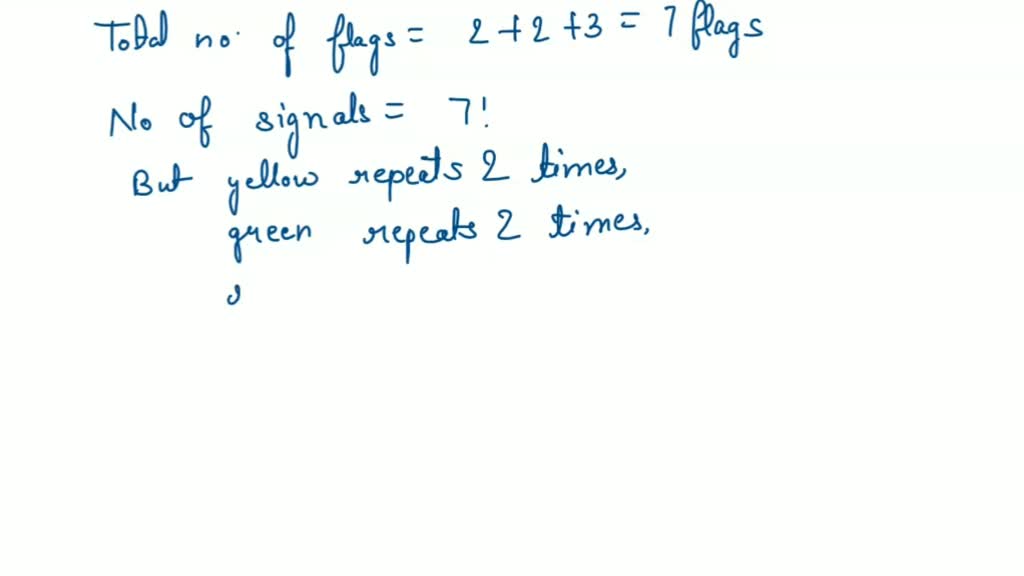 Total no. of flags = 2+2+3 = 7 flags
No of signals = 7!
But yellow repeats 2 times,
green repeats 2 times,